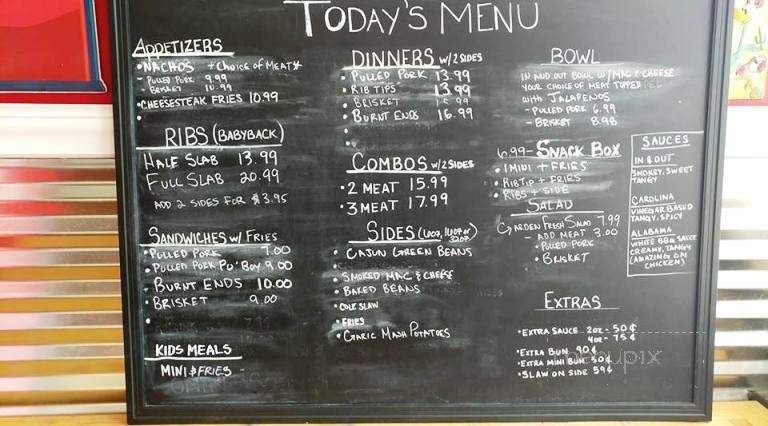 TODAY'S MENU
APPETIZERS
• NACHOS + Choice of MEAT
- PULLED PORK 9.99
- BRISKET 10.99
• CHEESESTEAK FRIES 10.99
RIBS (BABYBACK)
HALF SLAB 13.99
FULL SLAB 20.99
ADD 2 SIDES FOR $3.95
SANDWICHES W/ FRIES
• PULLED PORK 7.00
• PULLED PORK PO'BOY 9.00
• BURNT ENDS 10.00
• BRISKET 9.00
KIDS MEALS
MINI & FRIES
DINNERS W/2 SIDES
• PULLED PORK 13.99
• RIB TIPS 13.99
• BRISKET 15.99
• BURNT ENDS 16.99
COMBOS W/2 SIDES
• 2 MEAT 15.99
• 3 MEAT 17.99
SIDES
• CAJUN GREEN BEANS
• SMOKED MAC & CHEESE
• BAKED BEANS
• COLE SLAW
• FRIES
• GARLIC MASH POTATOES
BOWL
IN AND OUT BOWL W/ MAC & CHEESE
YOUR CHOICE OF MEAT TOPPED
WITH JALAPENOS
- PULLED PORK 6.99
- BRISKET 8.98
6.99 - SNACK BOX
• 1 MINI + FRIES
• RIBTIP + FRIES
• RIBS + SIDE
SALAD
GARDEN FRESH SALAD 7.99
- ADD MEAT 3.00
• PULLED PORK
• BRISKET
EXTRAS
• EXTRA SAUCE 2oz - 50¢
4oz - 75¢
• EXTRA BUN 90¢
• EXTRA MINI BUN 50¢
• SLAW ON SIDE 59¢
SAUCES
IN & OUT
SMOKEY, SWEET
TANGY
CAROLINA
VINEGAR BASED
TANGY, SPICY
ALABAMA
WHITE BBQ SAUCE
CREAMY, TANGY
(AMAZING ON
CHICKEN)